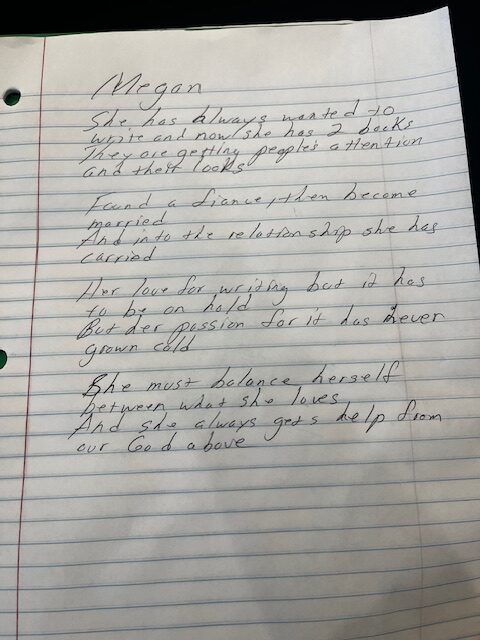 Megan
She has always wanted to
write and now she has 2 books
They are getting people's attention
and their looks
Found a fiance, then become
married
And into the relationship she has
carried
Her love for writing but it has
to be on hold
But her passion for it has never
grown cold
She must balance herself
between what she loves
And she always gets help from
our God above